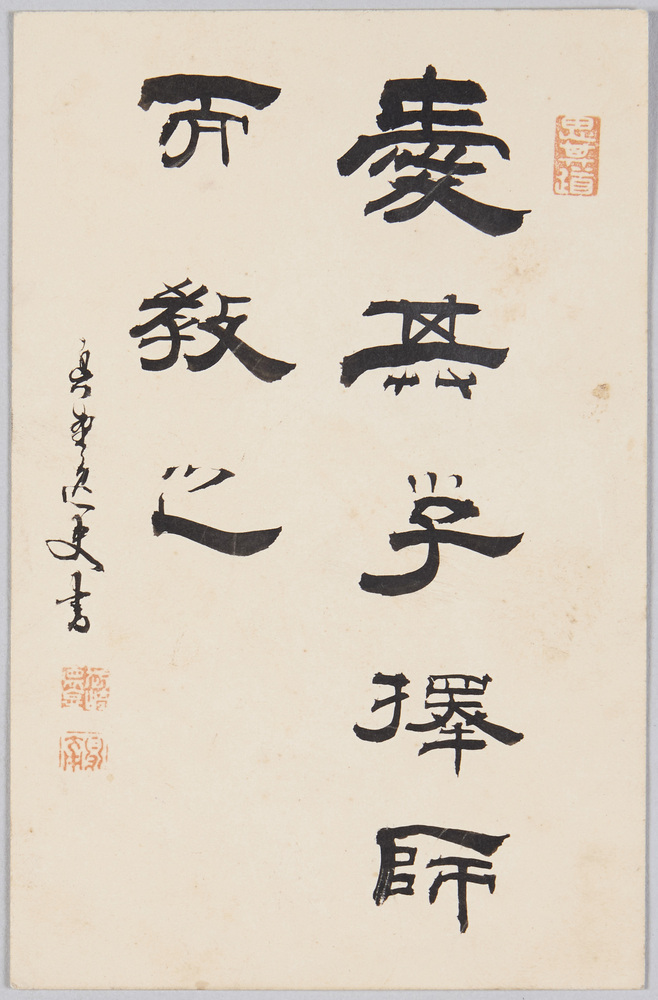 愛其子擇師
而教之
史書